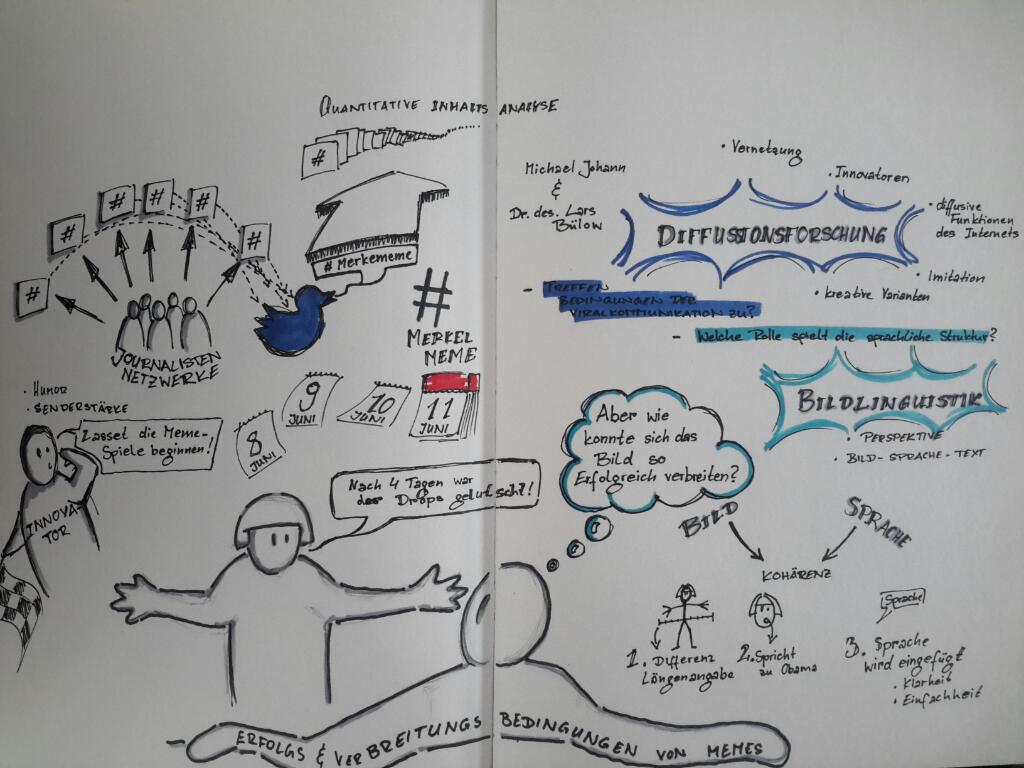 QUANTITATIVE INHALTS ANALYSE
#
# Merkememe
#
#
#
#
#
#
JOURNALISTEN
NETZWERKE
#
MERKEL
MEME
• HUMOR
• SENDERSTÄRKE
Lasset die Meme-
Spiele beginnen!
INNOVA-
TOR
8
JUNI
9
JUNI
10
JUNI
11
JUNI
Nach 4 Tagen war
der Drops gelutscht!
Michael Johann
&
Dr. des. Lars
Bülow
• Vernetzung
• Innovatoren
• diffusive
Funktionen
des Internets
DIFFUSIONSFORSCHUNG
• Imitation
• kreative Varianten
- TREFFEN
BEDINGUNGEN DER
VIRALKOMMUNIKATION ZU?
- Welche Rolle spielt die sprachliche Struktur?
BILDLINGUISTIK
• PERSPEKTIVE
• BILD-SPRACHE-TEXT
Aber wie
konnte sich das
Bild so
Erfolgreich verbreiten?
BILD
SPRACHE
KOHÄRENZ
1. Differenz
Längenangabe
2. Spricht
zu Obama
Sprache
3. Sprache
wird eingefügt
• Klarheit
• Einfachheit
ERFOLGS & VERBREITUNGS BEDINGUNGEN VON MEMES